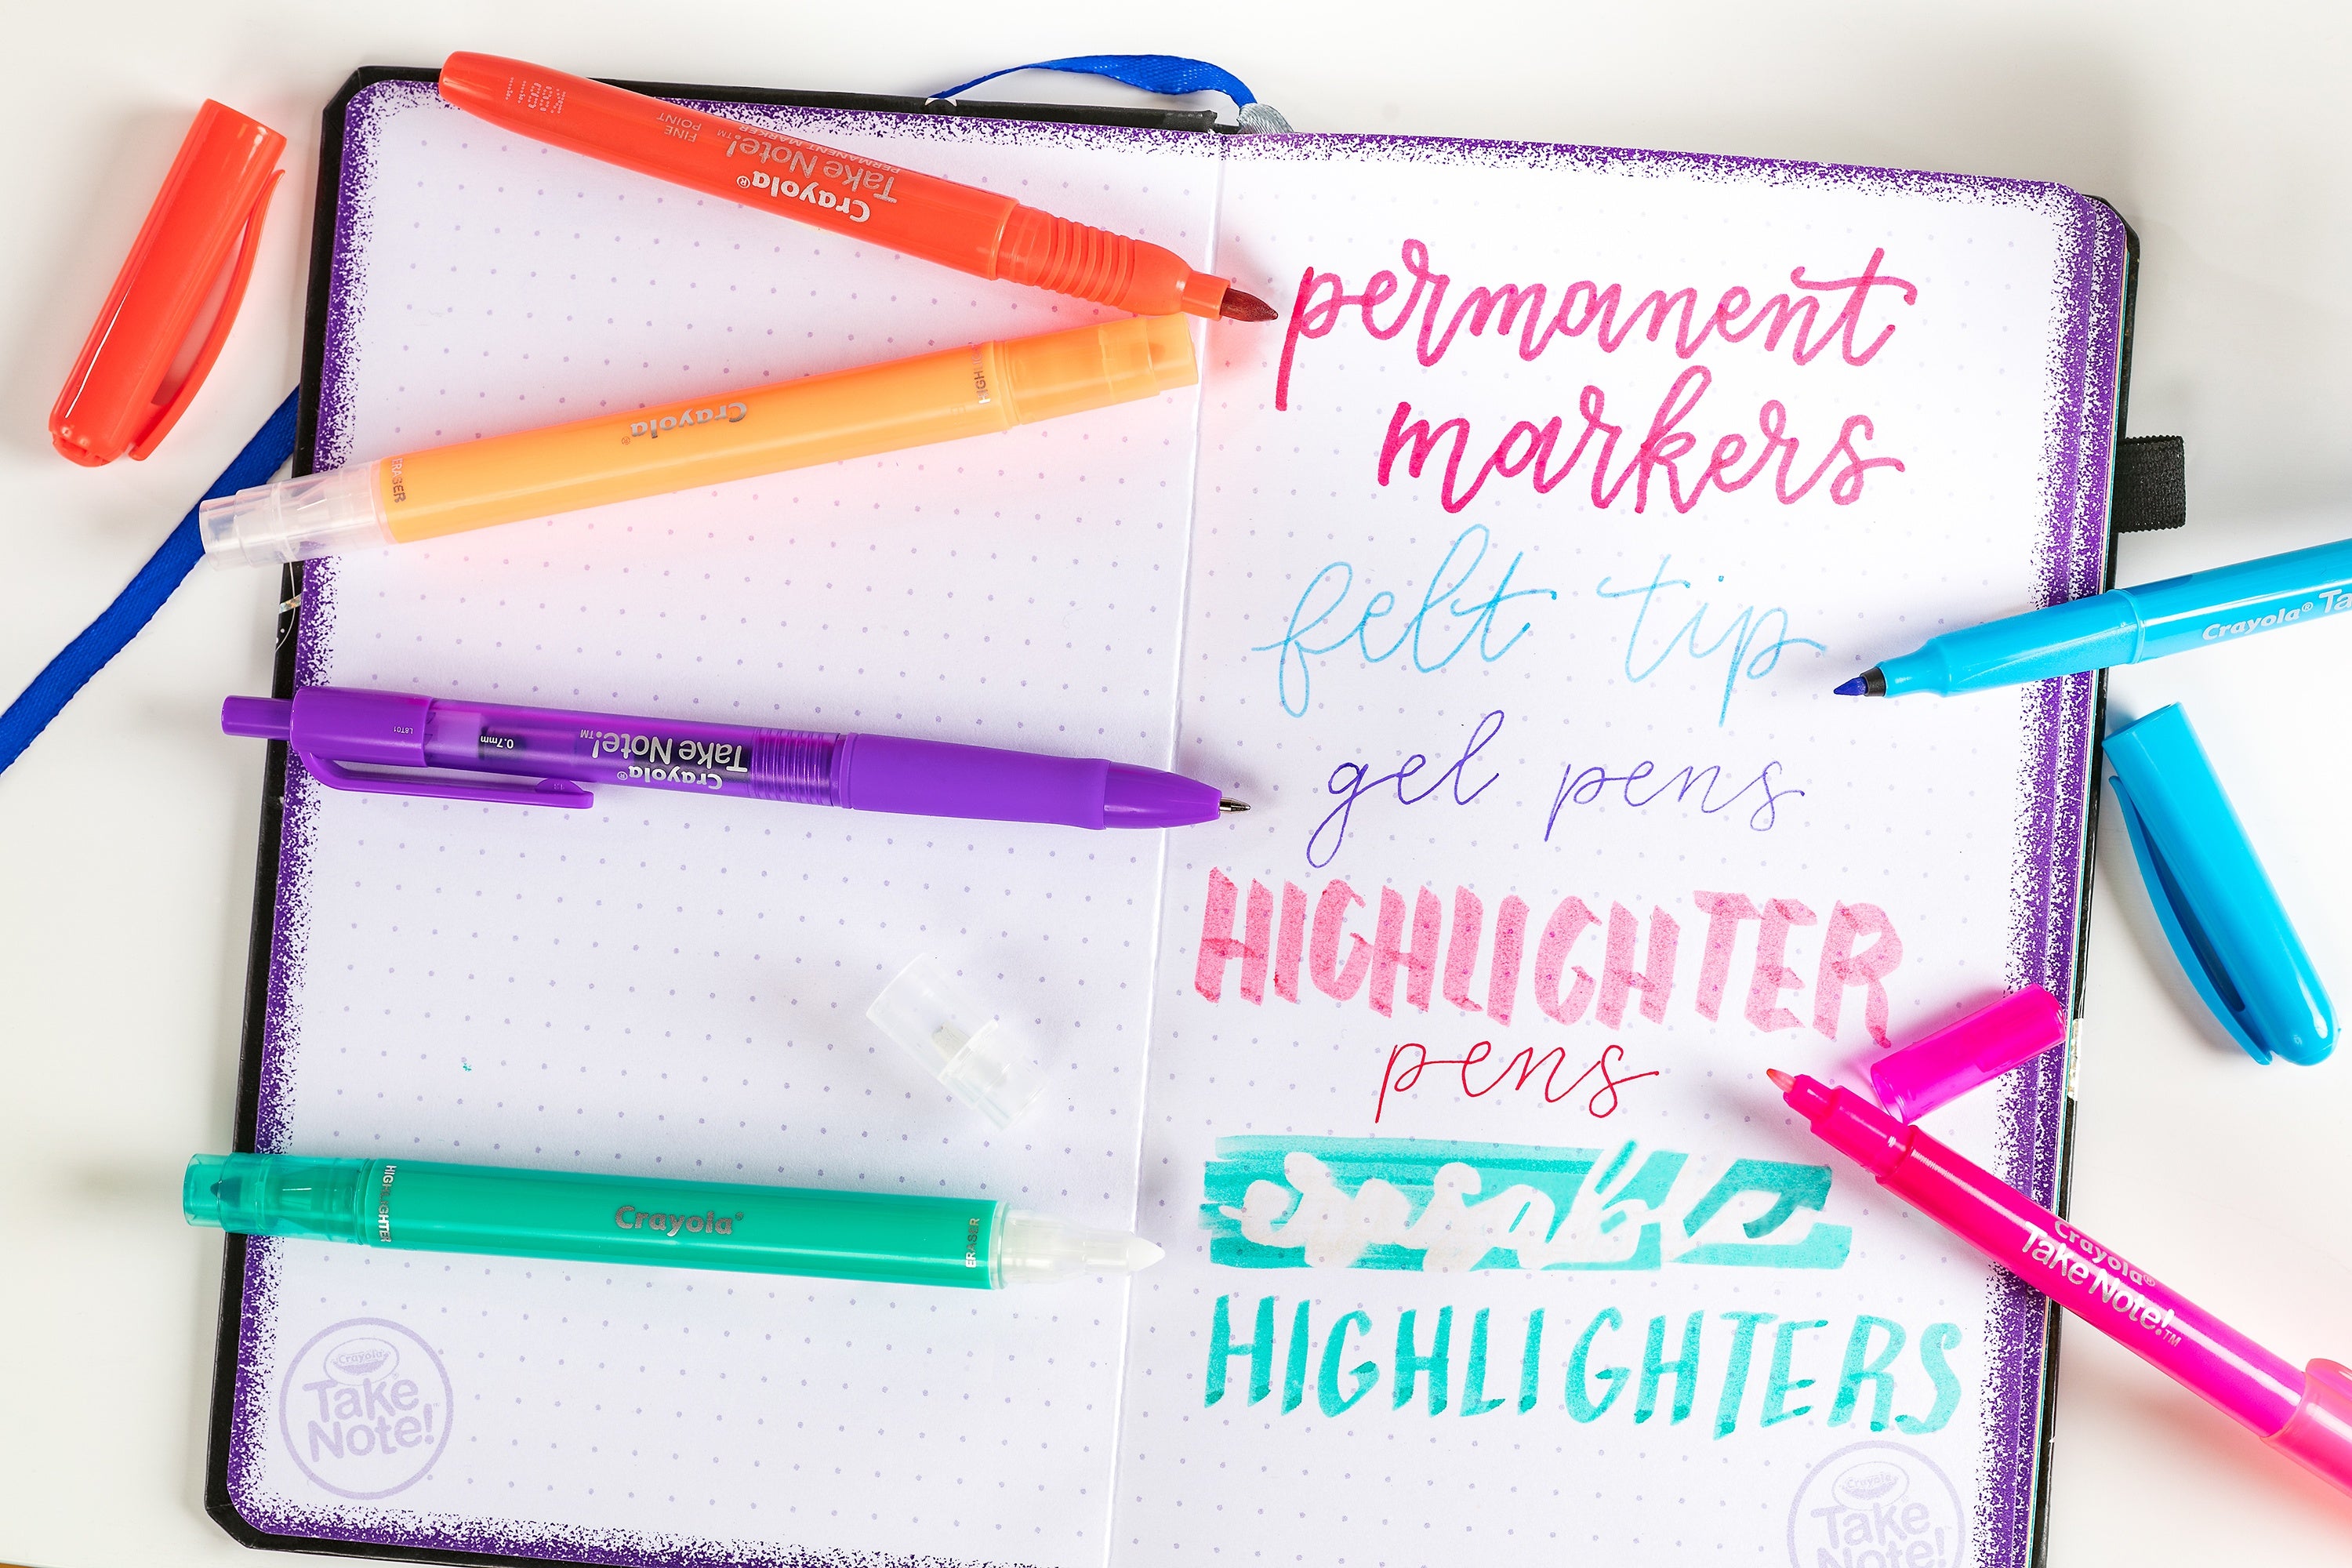 K8811
FINE
POINT
Crayola®
Take Note!™
PERMANENT MARKER
Crayola®
ERASER
0.7mm
Crayola®
Take Note!™
HIGHLIGHTER
Crayola®
ERASER
Crayola
Take
Note!
permanent
markers
felt tip
gel pens
HIGHLIGHTER
pens
HIGHLIGHTERS
Crayola® Ta
Crayola®
Take Note!™
Crayola
Take
Note!